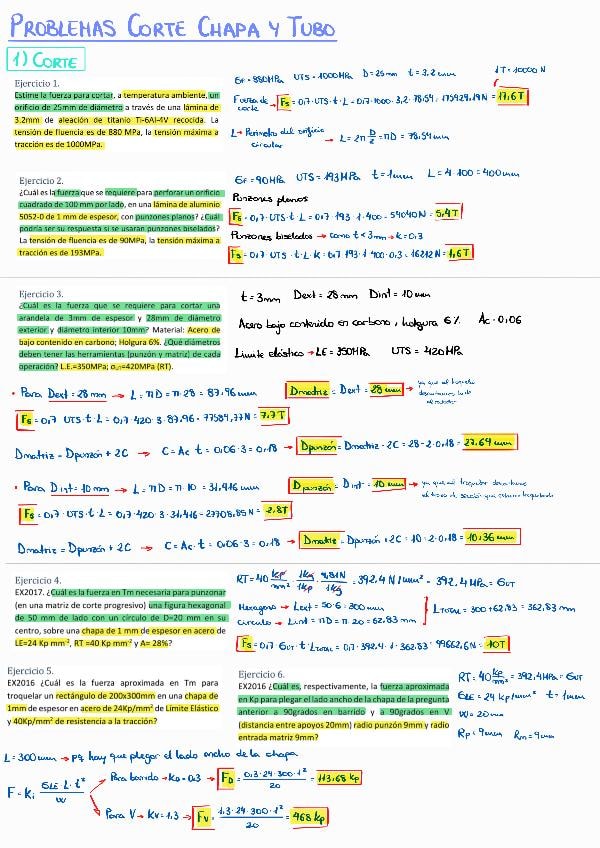 PROBLEMAS CORTE CHAPA Y TUBO
1) CORTE
Ejercicio 1.
Estime la fuerza para cortar, a temperatura ambiente, un
orificio de 25mm de diámetro a través de una lámina de
3.2mm de aleación de titanio Ti-6Al-4V recocida. La
tensión de fluencia es de 880 MPa, la tensión máxima a
tracción es de 1000MPa.
σF = 880MPa UTS = 1000MPa D = 25mm t = 3,2 mm 1T = 10000 N
Fuerza de corte → Fs = 0,7·UTS·t·L = 0,7·1000·3,2·78,54 = 175929,19N = 17,6T
L → Perímetro del orificio circular → L = 2π D/2 = πD = 78,54mm
Ejercicio 2.
¿Cuál es la fuerza que se requiere para perforar un orificio
cuadrado de 100 mm por lado, en una lámina de aluminio
5052-0 de 1 mm de espesor, con punzones planos? ¿Cuál
podría ser su respuesta si se usaran punzones biselados?
La tensión de fluencia es de 90MPa, la tensión máxima a
tracción es de 193MPa.
σF = 90MPa UTS = 193MPa t = 1mm L = 4·100 = 400mm
Punzones planos
Fs = 0,7·UTS·t·L = 0,7·193·1·400 = 54040N = 5,4T
Punzones biselados → como t < 3mm → k = 0,3
Fs = 0,7·UTS·t·L·k = 0,7·193·1·400·0,3 = 16212N = 1,6T
Ejercicio 3.
¿Cuál es la fuerza que se requiere para cortar una
arandela de 3mm de espesor y 28mm de diámetro
exterior y diámetro interior 10mm? Material: Acero de
bajo contenido en carbono; Holgura 6%. ¿Qué diámetros
deben tener las herramientas (punzón y matriz) de cada
operación? L.E.=350MPa; σut=420MPa (RT).
t = 3mm Dext = 28mm Dint = 10mm
Acero bajo contenido en carbono, holgura 6% Ac = 0,06
Límite elástico → LE = 350MPa UTS = 420MPa
• Para Dext = 28mm → L = πD = π·28 = 87,96mm
Dmatriz = Dext = 28mm → ya que al hacerlo
Fs = 0,7·UTS·t·L = 0,7·420·3·87,96 = 77584,77N = 7,7T
Dmatriz = Dpunzón + 2C → C = Ac·t = 0,06·3 = 0,18 → Dpunzón = Dmatriz - 2C = 28 - 2·0,18 = 27,64mm
• Para Dint = 10mm → L = πD = π·10 = 31,416mm
Dpunzón = Dint = 10mm → ya que al troquelar
Fs = 0,7·UTS·t·L = 0,7·420·3·31,416 = 27708,85N = 2,8T
Dmatriz = Dpunzón + 2C → C = Ac·t = 0,06·3 = 0,18 → Dmatriz = Dpunzón + 2C = 10 + 2·0,18 = 10,36mm
Ejercicio 4.
EX2017. ¿Cuál es la fuerza en Tm necesaria para punzonar
(en una matriz de corte progresivo) una figura hexagonal
de 50 mm de lado con un círculo de D=20 mm en su
centro, sobre una chapa de 1 mm de espesor en acero de
LE=24 Kp mm⁻², RT =40 Kp mm⁻² y A= 28%?
RT = 40 kp/mm² · 1kg/1kp · 9,81N/1kg = 392,4N/mm² = 392,4MPa = σUT
Hexágono → Lext = 50·6 = 300mm
Círculo → Lint = πD = π·20 = 62,83mm
LTOTAL = 300 + 62,83 = 362,83mm
Fs = 0,7·σUT·t·LTOTAL = 0,7·392,4·1·362,83 = 99662,6N = 10T
Ejercicio 5.
EX2016 ¿Cuál es la fuerza aproximada en Tm para
troquelar un rectángulo de 200x300mm en una chapa de
1mm de espesor en acero de 24Kp/mm² de Límite Elástico
y 40Kp/mm² de resistencia a la tracción?
Ejercicio 6.
EX2016 ¿Cuál es, respectivamente, la fuerza aproximada
en Kp para plegar el lado ancho de la chapa de la pregunta
anterior a 90grados en barrido y a 90grados en V
(distancia entre apoyos 20mm) radio punzón 9mm y radio
entrada matriz 9mm?
RT = 40 kp/mm² = 392,4MPa = σUT
σLE = 24 kp/mm² t = 1mm
W = 20mm
Rp = 9mm Rm = 9mm
L = 300mm → pq hay que plegar el lado ancho de la chapa
F = Ki σLE·L·t²/W
Para barrido → KD = 0,3 → FD = 0,3·24·300·1²/20 = 113,68 kp
Para V → KV = 1,3 → FV = 1,3·24·300·1²/20 = 468 kp